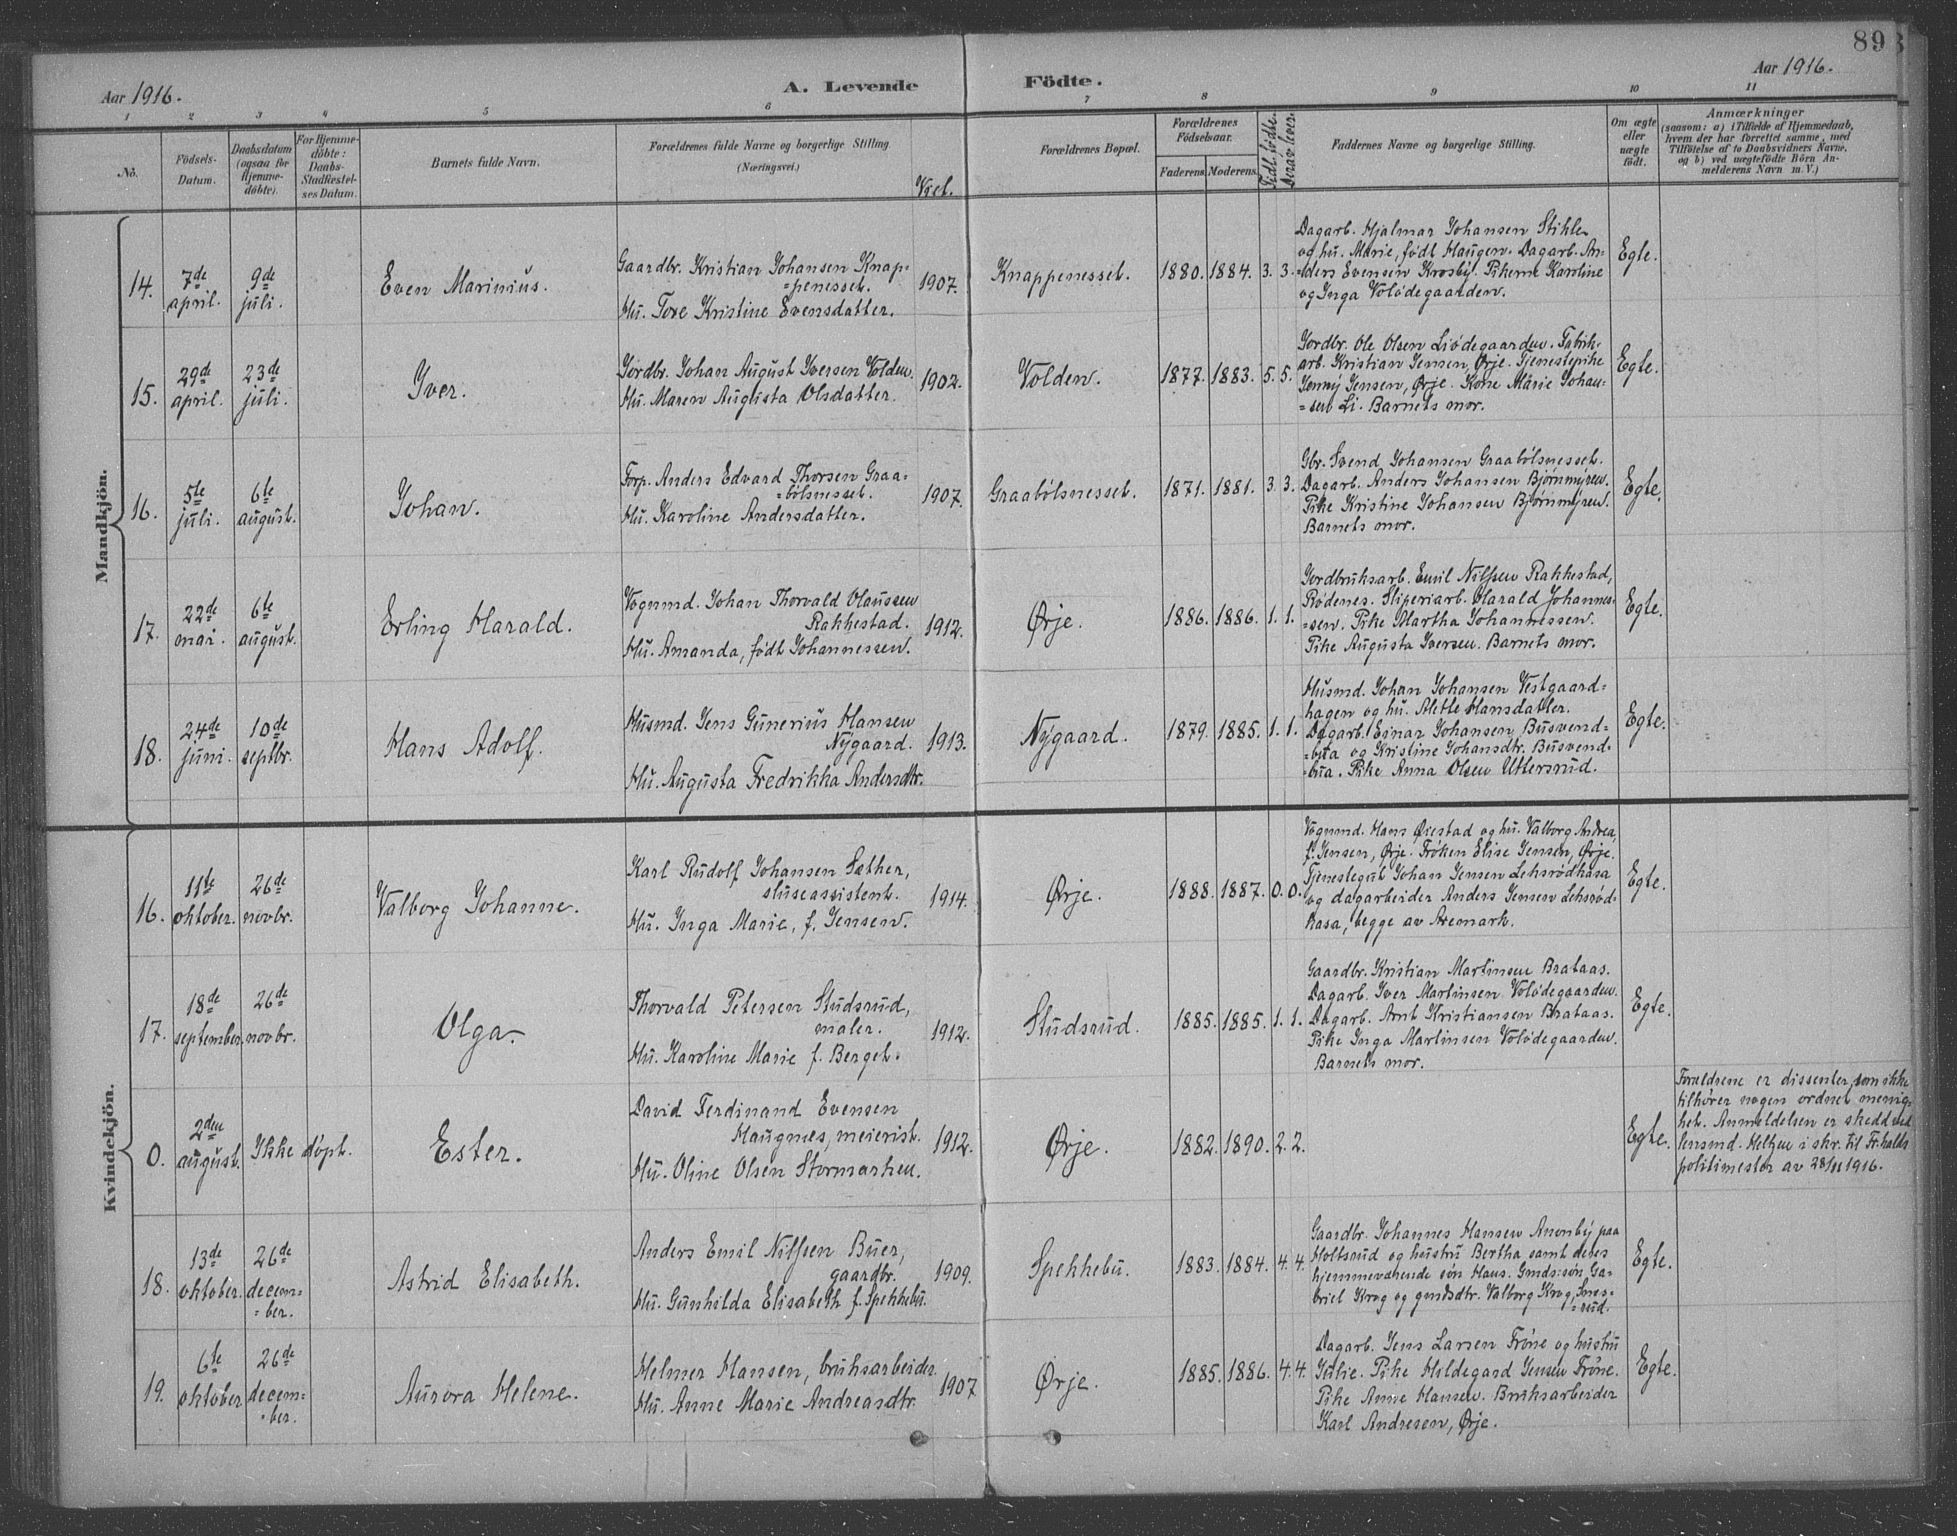 89
Aar 1916.
A. Levende Födte.
Aar 1916.
1 2 3 4 5 6 7 8 9 10 11
No.
Födsels-Datum.
Daabsdatum (ogsaa for Hjemme-döbte).
For Hjemme-döbte: Daabs-Stadfæstel-ses Datum.
Barnets fulde Navn.
Forældrenes fulde Navne og borgerlige Stilling. (Næringsvei.)
Viet.
Forældrenes Bopæl.
Forældrenes Födselsaar.
Faderens. Moderens.
Tidl. fødte.
Derav lever.
Faddernes Navne og borgerlige Stilling.
Om ægte eller uægte født.
Anmærkninger
(saasom: a) i Tilfælde af Hjemmedaab,
hvem der har forrettet samme, med
Tilföielse af to Daabsvidners Navne,
og b) ved uægtefödte Börn An-
melderens Navn m. V.)
Mandkjön.
14.
7de april.
9de juli.
Even Marinius.
Gaardbr. Kristian Johansen Knap-
=penesset.
Hu. Tore Kristine Evensdatter.
1907.
Knappenesset.
1880. 1884. 3. 3.
Dagarb. Hjalmar Johansen Stikle
og hu. Marie, født Haugen. Dagarb. An-
=ders Evensen Krosby. Pikerne Karoline
og Inga Volødegaarden.
Egte.
15.
29de april.
23de juli.
Iver.
Jordbr. Johan August Iversen Volden.
Hu. Maren Augusta Olsdatter.
1902.
Volden.
1877. 1883. 5. 5.
Jordbr. Ole Olsen Liødegaarden. Fabrik-
arb. Kristian Jensen, Ørje. Tjenestepike
Jenny Jensen, Ørje. Kone Marie Johan-
=sen Li. Barnets mor.
Egte.
16.
5te juli.
6te august.
Johan.
Torp. Anders Edvard Thorsen Graa-
=bølsnesset.
Hu. Karoline Andersdatter.
1907.
Graabølsnesset.
1871. 1881. 3. 3.
Gbr. Svend Johansen Graabølsnesset.
Dagarb. Anders Johansen Bjørnmyren.
Pike Kristine Johansen Bjørnmyren.
Barnets mor.
Egte.
17.
22de mai.
6te august.
Erling Harald.
Vognmd. Johan Thorvald Olaussen
Rakkestad.
Hu. Amanda, født Johannessen.
1912.
Ørje.
1886. 1886. 1. 1.
Jordbruksarb. Emil Nilssen Rakkestad,
Rødenes. Sliperiarb. Harald Johannes-
=sen. Pike Martha Johannessen.
Pike Augusta Iversen. Barnets mor.
Egte.
18.
24de juni.
10de septbr.
Hans Adolf.
Husmd. Jens Gunerius Hansen
Nygaard.
Hu. Augusta Fredrikka Andersdtr.
1913.
Nygaard.
1879. 1885. 1. 1.
Husmd. Johan Johansen Vestgaard=
hagen og hu. Alette Hansdatter.
Dagarb. Einar Johansen, Busvend=
=bua og Kristine Johansdtr. Busvend=
=bua. Pike Anna Olsen Uttersrud.
Egte.
Kvindekjön.
16.
11te oktober.
26de novbr.
Valborg Johanne.
Karl Rudolf Johansen Sæther,
sluseassistent.
Hu. Inga Marie, f. Jensen.
1914.
Ørje.
1888. 1887. 0. 0.
Vognmd. Hans Ørestad og hu. Valborg Andrea,
f. Jensen, Ørje. Frøken Elise Jensen, Ørje.
Tjenestegut Johan Jensen Leksrødkasa
og dagarbeider Anders Jensen Leksrød-
kasa, begge av Aremark.
Egte.
17.
18de september.
26de novbr.
Olga.
Thorvald Petersen Studsrud,
maler.
Hu. Karoline Marie f. Berget.
1912.
Studsrud.
1885. 1885. 1. 1.
Gaardbr. Kristian Martinsen Brataas.
Dagarb. Iver Martinsen Volødegaarden.
Dagarb. Arnt Kristiansen Brataas.
Pike Inga Martinsen Volødegaarden.
Barnets mor.
Egte.
0.
2den august.
Ikke døpt.
Ester.
David Ferdinand Evensen
Haugnes, meierist.
Hu. Oline Olsen Stormarken.
1912.
Ørje.
1882. 1890. 2. 2.
Egte.
Forældrene er dissenter, som ikke
tilhører nogen ordnet menig-
het. Anmeldelsen er skedd ved
lensmd. Heltne i skr. til Fr.halds
politimester av 28/11 1916.
18.
13de oktober.
26de decem=
=ber.
Astrid Elisabeth.
Anders Emil Nilssen Buer,
gaardbr.
Hu. Gunhilda Elisabeth f. Spekkebu.
1909.
Spekkebu.
1883. 1884. 4. 4.
Gaardbr. Johannes Hansen Anonby paa
Holtsrud og hustru Bertha samt deres
hjemmeværende søn Hans. Gmds: søn Ga-
briel Krog og gmdsdtr. Valborg Krog,
=rud.
Egte.
19.
6te oktober
26de decem=
=ber.
Aurora Helene.
Helmer Hansen, bruksarbeider
Hu. Anne Marie Andreasdtr.
1907
Ørje.
1885. 1886. 4. 4.
Dagarb. Jens Larsen Frøne og hustru
Julie. Pike Hildegard Jensen Frøne.
Pike Anne Hansen. Bruksarbeider
Karl Andresen, Ørje.
Egte.